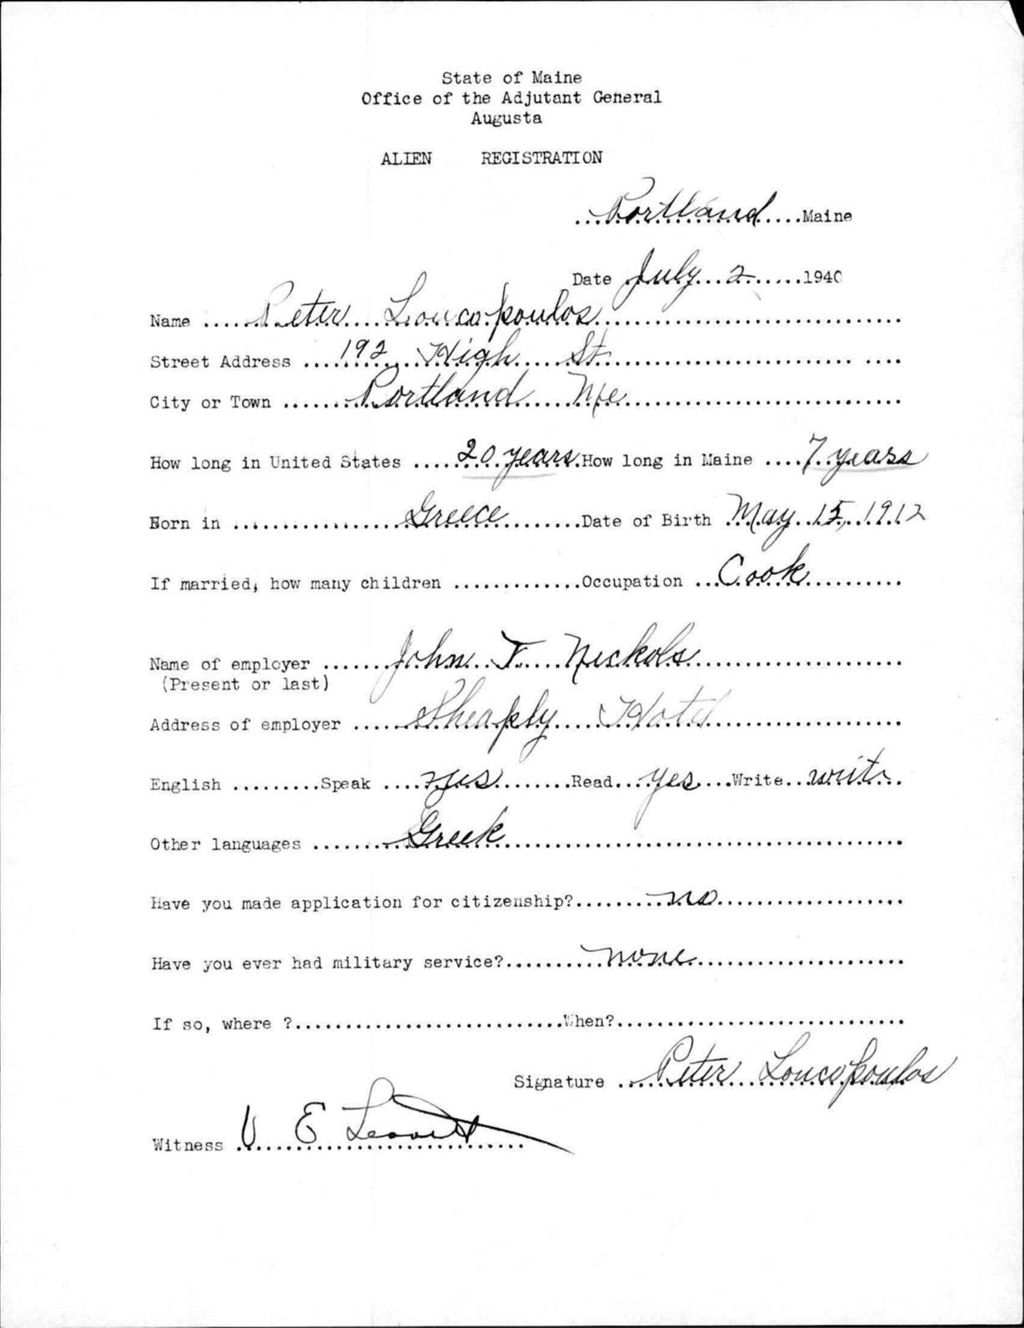 State of Maine
Office of the Adjutant General
Augusta
ALIEN REGISTRATION
Portland Maine
Date July 2 1940
Name Peter Loucopoulos
Street Address 192 High St.
City or Town Portland Me
How long in United States 20 years How long in Maine 7 years
Born in Greece Date of Birth May 15, 1912
If married, how many children Occupation Cook
Name of employer John T. Nickols
(Present or last)
Address of employer Sheaply Hotel
English Speak yes Read yes Write write
Other languages Greek
Have you made application for citizenship? no
Have you ever had military service? none
If so, where ? When?
Signature Peter Loucopoulos
Witness V E Leavitt